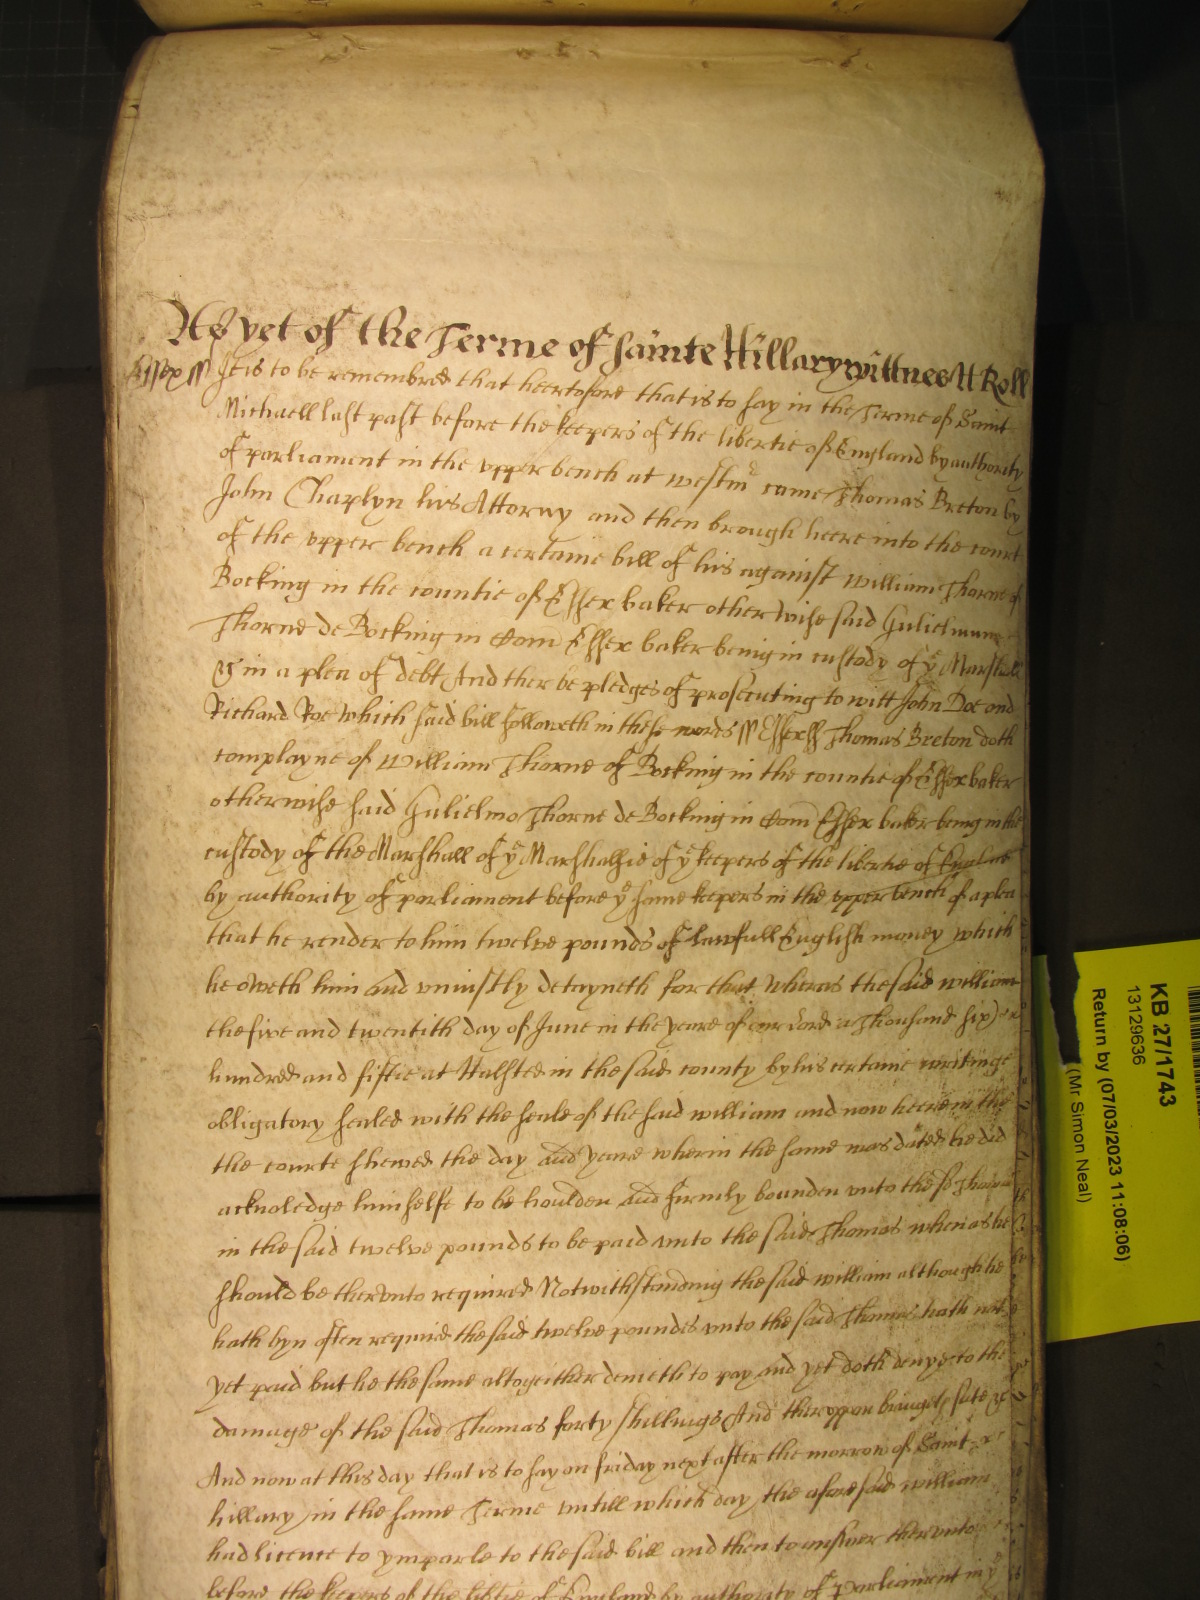 As yet of the Terme of Sainte Hillary wittnes H Roll
Essex ss It is to be remembred that heertofore that is to say in the Terme of Saint
Michaell last past before the keepers of the libertie of England by authority
of parliament in the upper bench at westmr came Thomas Breton by
John Chaplyn his Attorny and then brough heere into the court
of the upper bench a certaine bill of his against William Thorne of
Bocking in the countie of Essex baker otherwise said Gulielmum
Thorne de Bocking in Com Essex baker being in custody of ye Marshall
&c in a plea of debt And ther be pledges of prosecuting to witt John Doe and
Richard Roe Which said bill followeth in these words ss Essex ss Thomas Breton doth
complayne of William Thorne of Bocking in the countie of Essex baker
otherwise said Gulielmo Thorne de Bocking in Com Essex baker being in the
custody of the Marshall of ye Marshalsie of ye keepers of the libertie of England
by authority of parliament before ye same keepers in the upper bench of a plea
that he render to him twelve pounds of lawfull English money which
he oweth him and uniustly detayneth for that wheras the said william
the five and twentith day of June in the yeare of our Lord a Thousand six
hundred and fiftie at Halsted in the said county by his certaine writinge
obligatory sealed with the seale of the said william and now heere in the
the courte shewed the day and yeare wherin the same was dated he did
acknoledge himselfe to be houlden and firmly bounden unto the sd Thomas
in the said twelve pounds to be paid unto the said Thomas whenas he
should be therunto required Notwithstanding the said william although he
hath byn often required the said twelve poundes unto the said Thomas hath not
yet paid but he the same altogeither denieth to pay and yet doth denye to the
damage of the said Thomas forty shillings And theruppon bringeth sute &c
And now at this day that is to say on friday next after the morrow of Saint
hillary in the same Terme untill which day the aforesaid william
had licence to ymparle to the said bill and then to answer therunto
before the keepers of the libtie of England by authority of Parliament in ye
KB 27/1743
13129636
Return by (07/03/2023 11:08:06)
(Mr Simon Neal)